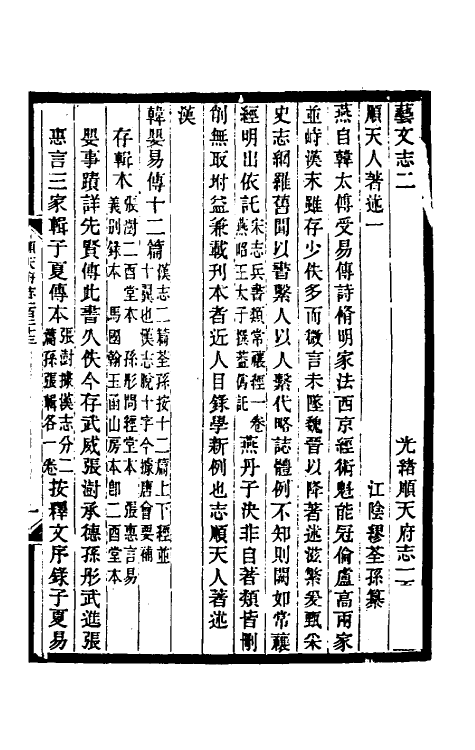 藝文志二　光緒順天府志一百二十三
順天人著述一　江陰繆荃孫纂
燕自韓太傅受易傳詩脩明家法西京經術魁能冠倫盧高兩家
並峙漢末雖存少佚多而微言未墜魏晉以降著述滋繁爰甄采
史志網羅舊聞以書繫人以人繫代略誌體例不知則闕如常禳
經明出依託宋志兵書類常禳經一卷燕昭王太子撰蓋僞記燕丹子決非自著類皆刪
削無取坿益兼載刊本者近人目錄學新例也志順天人著述
漢
韓嬰易傳十二篇漢志二篇荃孫按十二篇上下經並十翼也漢志脫十字今據唐會要補
存輯本張澍二酉堂本　孫彤問經堂本　張惠言易義別錄本　馬國翰玉函山房本卽二酉堂本
嬰事蹟詳先賢傳此書久佚今存武威張澍承德孫彤武進張
惠言三家輯子夏傳本張澍據漢志分二篇孫張輯各一卷按釋文序錄子夏易
順天府志